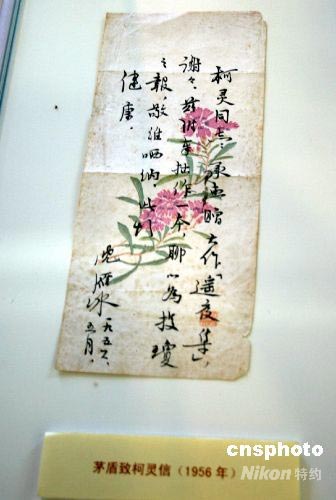 柯灵同志：承惠赠大作「遥夜集」，
谢谢。兹附奉拙作一本，聊以为投琼
之报，敬维哂纳。此颂
健康。
沈雁冰 一九五六、
五月、
茅盾致柯灵信（1956年）
cnsphoto
Nikon特约